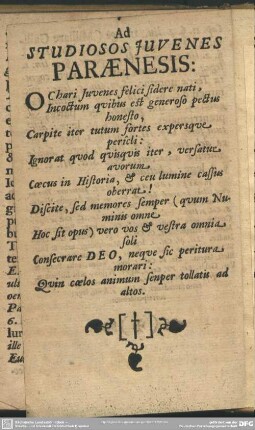 Ad
STUDIOSOS JUVENES
PARÆNESIS:
O Chari Juvenes felici sidere nati,
Incoctum qvibus est generoso pectus
honesto,
Carpite iter tutum fortes expersqve
pericli:
Ignorat qvod qvisqvis iter, versatur
avorum
Cæcus in Historia, & ceu lumine cassus
oberrat!
Discite, sed memores semper (qvum Nu-
minis omne
Hoc sit opus) vero vos & vestra omnia
soli
Consecrare DEO, neqve sic peritura
morari:
Qvin cœlos animum semper tollatis ad
altos.